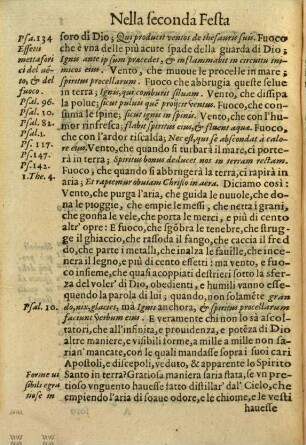 Nella seconda Festa
Psa. 134
Effetti
mettafori
ci del vẽ-
to, & del
fuoco.
Psal. 96.
Psal. 10.
Psal. 82.
Psal. 1.
Ps. 117.
Ps. 147.
Ps. 142.
1. The. 4.
Psal. 10.
Forme vi
sibili egra
tiose in
soro di Dio; Qui producit ventos de thesauris suis. Fuoco
che è vna delle più acute spade della guarda di Dio;
Ignis ante ipsum præcedet, & inflammabit in circuitu inimicos eius. Vento, che muoue le procelle in mare;
spiritus procellarum. Fuoco, che abbrugia queste selue
in terra; Ignis, qui comburit siluam. Vento, che dissipa
la polue; sicut puluis quẽ proijcit ventus. Fuoco, che consuma le spine; sicut ignis in spinis. Vento, che con l'humor rinfresca; flabit spiritus eius, & fluent aquæ. Fuoco,
che con l'ardor riscalda; Nec est, qui se abscondat à calore eius. Vento, che quando si turbarà il mare, ci porterà in terra; Spiritus bonus deducet nos in terram rectam.
Fuoco, che quando si abbrugerà la terra, ci rapirà in
aria; Et rapiemur obuiam Christo in aera. Diciamo così:
Vento, che purga l'aria, che guida le nuuole, che dona le pioggie, che empie le messi, che netta i grani,
che gonfia le vele, che porta le merci, e più di cento
altr' opre: E fuoco, che sgõbra le tenebre, che strugge il ghiaccio, che rassoda il fango, che caccia il freddo, che parte i metalli, che inalza le fauille, che incinera il legno, e più di cento effetti: ma vento, e fuoco insieme, che quasi accoppiati destrieri sotto la sferza del voler' di Dio, obedienti, e humili vanno essequendo la parola di lui; quando, non solamẽte grando, nix, glacies, ma Ignis anchora, & spiritus procellarum
faciunt verbum eius. E veramente chi non lo sà ascoltatori, che all'infinita, e prouidenza, e potẽza di Dio
altre maniere, e visibili forme, a mille a mille non sarian' mancate, con le quali mandasse sopra i suoi cari
Apostoli, e discepoli, veduto, & apparente lo Spirito
Santo in terra? Gratiosa maniera saria stata, se vn pretioso vnguento hauesse fatto distillar' dal Cielo, che
empiendo l'aria di soaue odore, e le chiome, e le vesti
hauesse